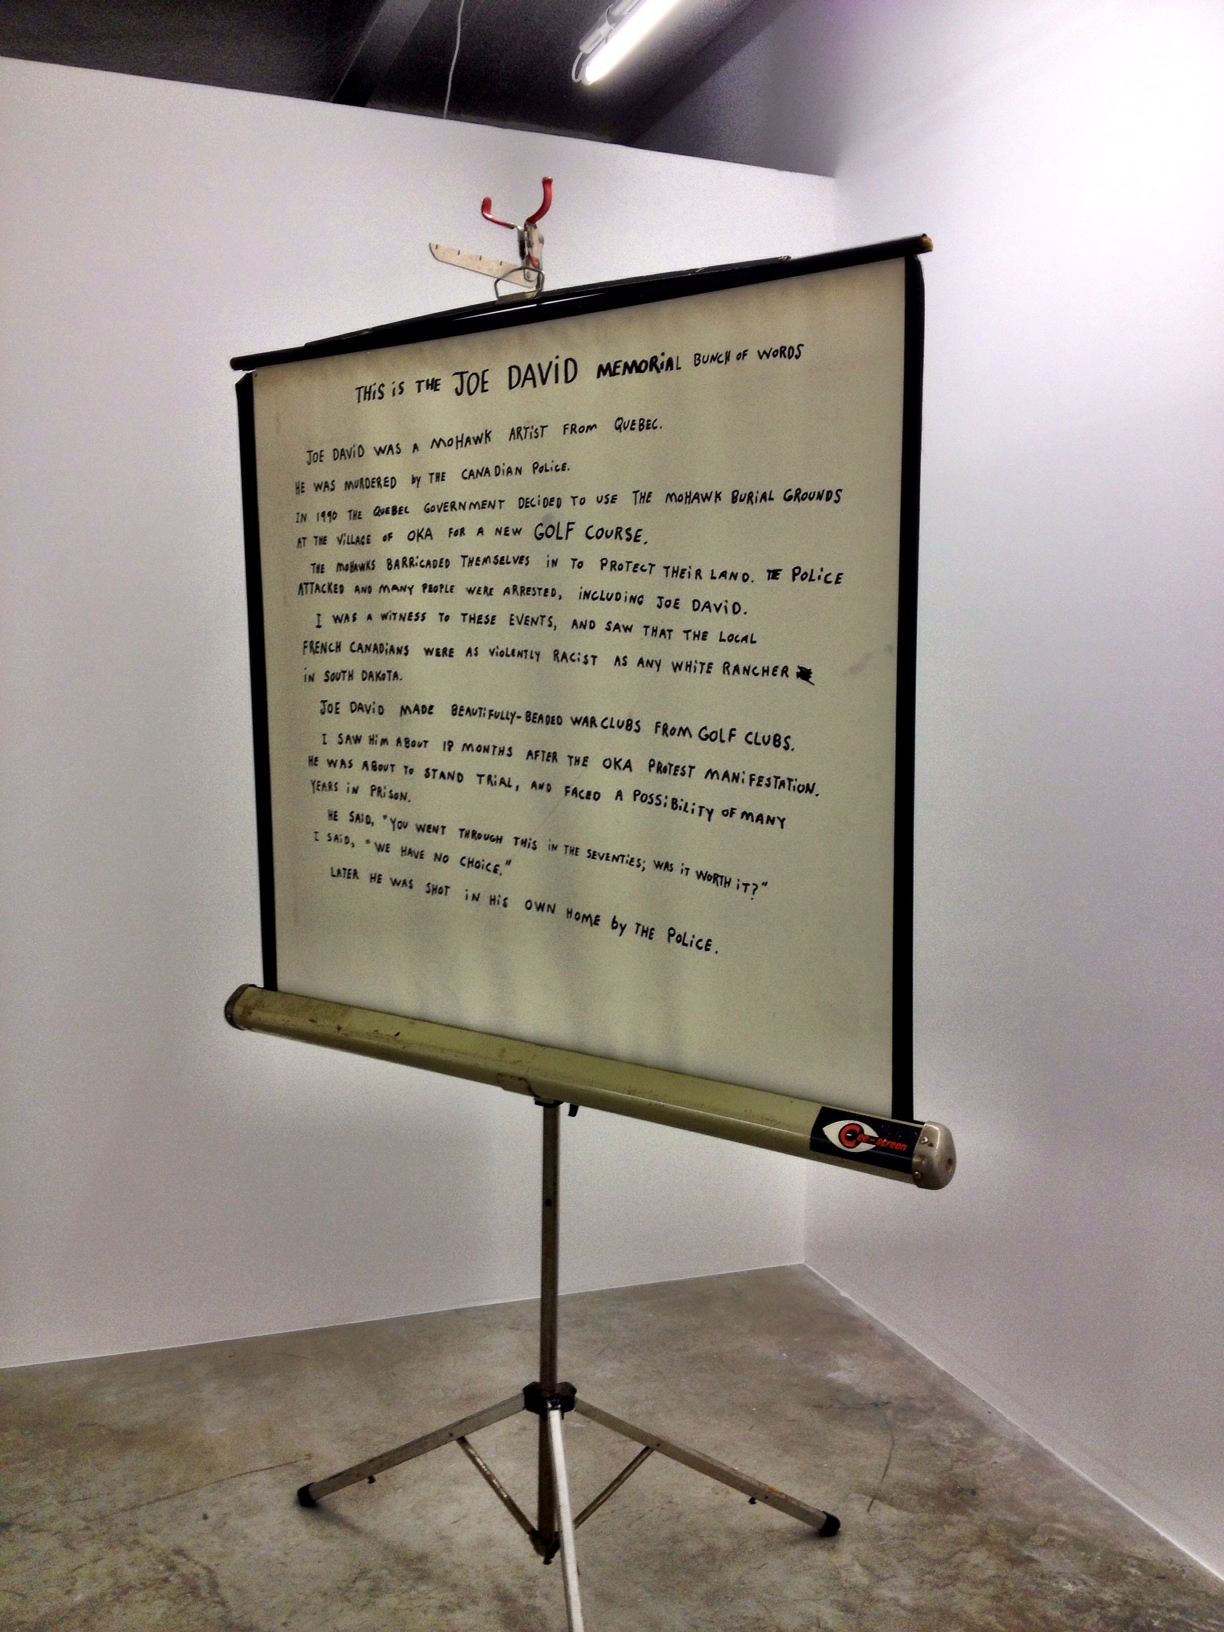 THIS iS THE JOE DAViD MEMORiAL BUNCH OF WORDS
JOE DAViD WAS A MOHAWK ARTiST FROM QUEBEC.
HE WAS MURDERED by THE CANADIAN POLiCE.
IN 1990 THE QUEBEC GOVERNMENT DECiDED TO USE THE MOHAWK BURIAL GROUNDS
AT THE ViLLAGE OF OKA FOR A NEW GOLF COURSE.
THE MOHAWKS BARRiCADED THEMSELVES IN TO PROTECT THEiR LAND. TE POLiCE
ATTACKED AND MANY PEOPLE WERE ARRESTED, INCLUDING JOE DAViD.
I WAS A WiTNESS TO THESE EVENTS, AND SAW THAT THE LOCAL
FRENCH CANADiANS WERE AS ViOLENTLY RACiST AS ANY WHITE RANCHER
iN SOUTH DAKOTA.
JOE DAViD MADE BEAUTiFULLY-BEADED WAR CLUBS FROM GOLF CLUBS.
I SAW HiM ABOUT 18 MONTHS AFTER THE OKA PROTEST MANiFESTATiON.
HE WAS ABOUT TO STAND TRiAL, AND FACED A POSSiBiLiTY OF MANY
YEARS IN PRiSON.
HE SAiD, "YOU WENT THROUGH THiS iN THE SEVENTiES; WAS iT WORTH iT?"
I SAiD, "WE HAVE NO CHOiCE."
LATER HE WAS SHOT iN HiS OWN HOME by THE POLiCE.